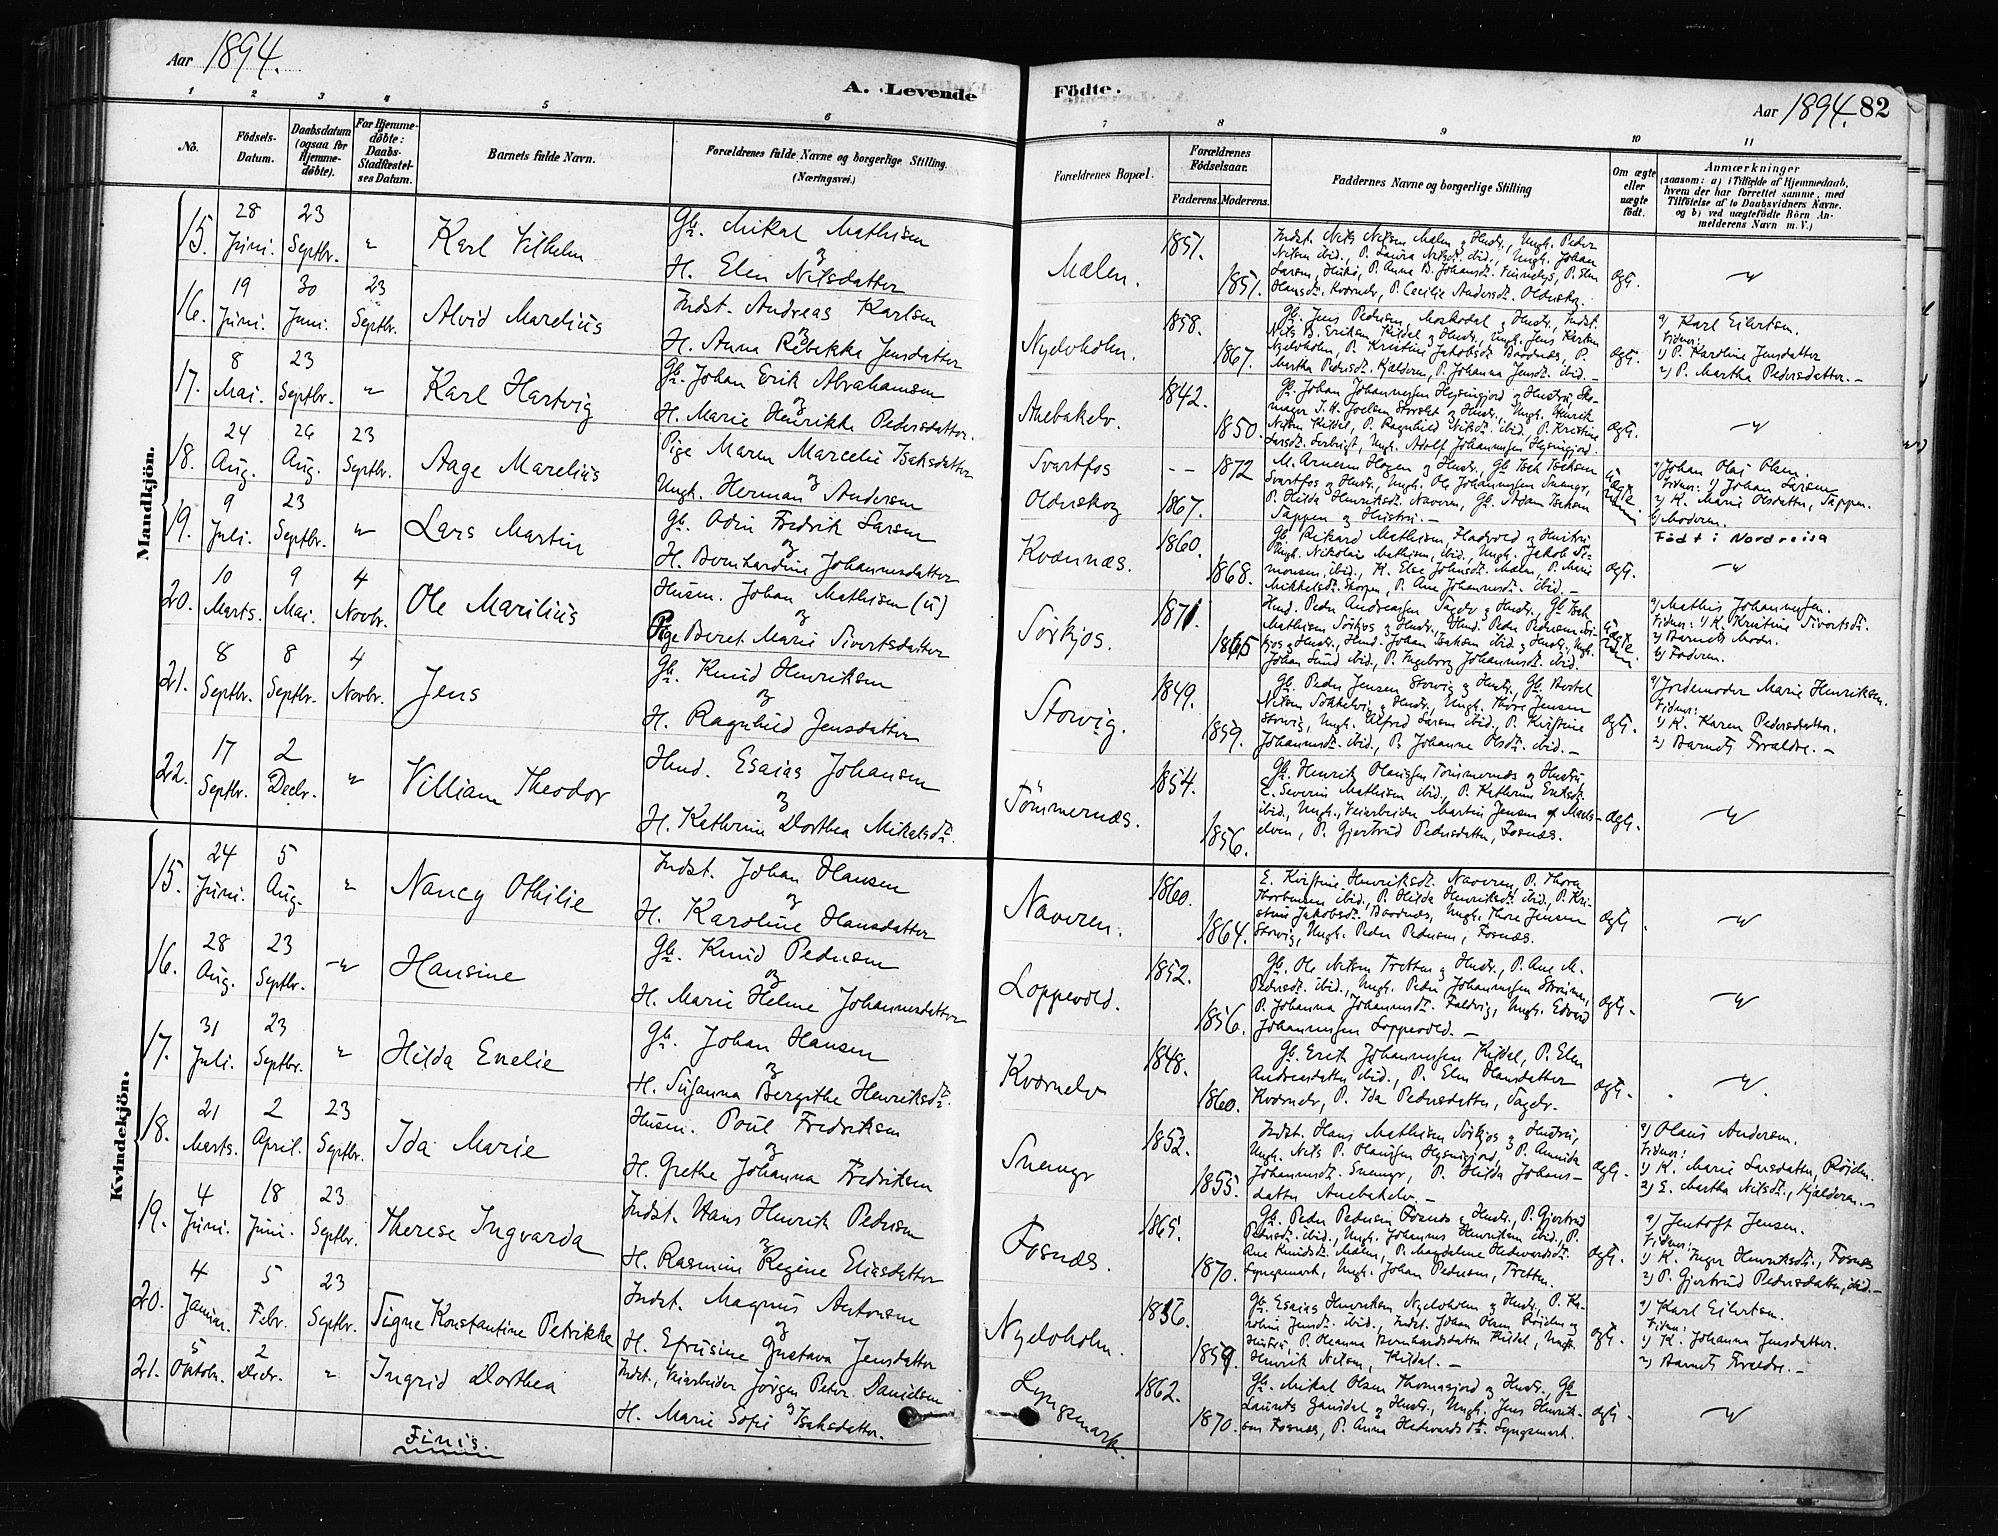 Aar 1894.
A. Levende Födte.
Aar 1894. 82
1 2 3 4 5 6 7 8 9 10 11
No.
Födsels-Datum.
Daabsdatum (ogsaa for Hjemme-döbte).
For Hjemme-döbte: Daabs-Stadfæstel-ses Datum.
Barnets fulde Navn.
Forældrenes fulde Navne og borgerlige Stilling.
(Næringsvei.)
Forældrenes Bopæl.
Forældrenes Födselsaar.
Faderens. Moderens.
Faddernes Navne og borgerlige Stilling
Om ægte eller uægte födt.
Anmærkninger
(saasom: a) i Tilfælde af Hjemmedaab,
hvem der har forrettet samme, med
Tilföielse af to Daabsvidners Navne.
og b) ved uægtefödte Börn An-
melderens Navn m. V.)
Mandkjön.
15. 28 Juni. 23 Septbr. " Karl Vilhelm
Gb. Mikal Mathisen
og
H. Elen Nilsdatter
Malen. 1851. 1851.
Indst. Nils Nilsen Malen og Hustr., Ungk. Peder
Nilsen ibid., P. Laura Nilsdt. ibid., Ungk. Johan
Hansdt. Kvænelv, P. Cecilie Andersdt. Oldenskog.
ægt.
16. 19 Juni. 30 Juni. 23 Septbr. Alvid Marelius
Indst. Andreas Karlsen
og
H. Anna Rebekka Jensdatter
Nyelvholm. 1858. 1867.
Gb. Jens Pedersen, Moskodal og Hustr., Indst.
Nils B. Eriksen Kildal og Hustr., Ungk. Jens Karlsen
Nyelvholm, P. Kristine Jakobsdt. Baadnæs, P.
Martha Pedersdt. Kjelderen, P. Johanna Jensdt. ibid. -
ægt.
a) Karl Eilertsen.
Vidner:
1) P. Karoline Jensdatter
2) P. Martha Pedersdatter. -
17. 8 Mai. 23 Septbr. " Karl Hartvig
Gb. Johan Erik Abrahamsen
og
H. Marie Henrikke Pedersdatter.
Anebakelv. 1842. 1850.
Gb. Johan Johannesen Hysingjord og Hustru, Sko-
mager J. H. Joelsen Storslet og Hustr., Ungk. Henrik
Nilsen Kildal, P. Ragnhild Nilsdt. ibid., P. Kristine
Larsdt. Lerbugt, Ungk. Adolf Johannesen Hysingjord.
ægt.
18. 24 Aug. 26 Aug. 23 Septbr. Aage Marelius
Pige Maren Marcelie Isaksdatter
og
Ungk. Herman Andersen
Svartfos
Oldenskog
- - 1872
1867.
M. Arnesen Hagen og Hustr., Gb. Isak Isaksen
Svartfos og Hustr., Ungk. Ole Johannesen Snemyr,
P. Hilda Henriksdt. Naveren, Gb. Adam Isaksen
Tappen og Hustru. -
a) Johan Olai Olsen.
Vidner: 1) Johan Larsen
2) K. Marie Olsdatter, Tappen.
b) Moderen.
Født i Nordreisa
19. 9 Juli. 23 Septbr. " Lars Martin
Gb. Odin Fredrik Larsen
og
H. Bernhardine Johannesdatter
Kvænnæs. 1860. 1868.
Gb. Rikard Mathisen, Fladvold og Hustru
Ungk. Nikolai Mathisen, ibid., Ungk. Jakob Si-
monsen, ibid., K. Else Johnsdt. Malen, P. Marie
Mikkelsdt. Storsen, P. Ane Johannesdt. ibid. -
ægt.
20. 10 Marts. 9 Mai. 4 Novbr. Ole Marilius
Husm. Johan Mathisen (u)
og
Pige Beret Marie Sivertsdatter
Sørkjos. 1871 1865
Husm. Peder Andreassen Sagelv og Hustr., Gb. Isak
Mathisen Sørkjos og Hustr., Husm. Peder Pedersen Sør-
kjos og Hustr., Husm. Johan Isaksen ibid. og Hustr., Ungk.
Johan Lund ibid., P. Ingeborg Johannesdt. ibid.
a) Mathis Johannesen.
Vidner: 1) K. Kristine Sivertsdt.
2) Barnets Moder.
b) Faderen.
21. 8 Septbr. 8 Septbr. 4 Novbr. Jens
Gb. Knud Henriksen
og
H. Ragnhild Jensdatter
Storvig. 1849. 1859.
Gb. Peder Jensen Storvig og Hustr., Gb. Bertel
Nilsen Sokkelvig og Hustr., Ungk. Thore Jensen
Storvig, Ungk. Alfred Larsen ibid., P. Kristine
Johannesdt. ibid., P. Johanne Olsdt. ibid. -
ægt.
a) Jordemoder Marie Henriksen.
Vidner:
1) K. Karen Pedersdatter.
2) Barnets Forældre. -
22. 17 Septbr. 2 Decbr. " Villiam Theodor
Husd. Esaias Johansen
og
H. Kathrine Dorthea Mikalsdt.
Tømmernæs. 1854. 1856.
Gb. Henrik Olaussen Tømmernæs og Hustru
E. Severin Mathisen ibid., P. Kathrine Eriksdt.
ibid., Ungk., Veiarbeider Martin Jensen af Maals-
elven, P. Gjertrud Pedersdatter, Fosnæs.
ægt.
Kvindekjön.
15. 24 Juni. 5 Aug. " Nancy Othilie
Indst. Johan Hansen
og
H. Karoline Hansdatter
Naveren. 1860. 1864.
E. Kristine Henriksdt. Naveren, P. Thora
Thorbensen ibid., P. Hilda Henriksdt. ibid., P. Kri-
stine Jakobsdt. Baadnæs, Ungk. Thore Jensen
Storvig, Ungk. Peder Pedersen, Fosnæs.
ægt.
16. 28 Aug. 23 Septbr. Hansine
Gb. Knud Pedersen
og
H. Marie Helene Johannesdatter
Loppevold. 1852. 1856.
Gb. Ole Nilsen Tretten og Hustr., P. Ane M.
Pedersdt. ibid., Ungk. Peder Johannesen Storeimen,
P. Johanna Johannesdt. Faldvig, Ungk. Edvard
Johannesen Loppevold. -
ægt.
17. 31 Juli. 23 Septbr. " Hilda Enelie
Gb. Johan Hansen
og
H. Susanna Bergithe Henriksdt.
Kvænelv 1848. 1860.
Gb. Erik Johannesen Kildal, P. Elen
Andreasdatter ibid., P. Elen Hansdatter
Kvænelv, P. Ida Pedersdatter, Sagelv.
ægt.
18. 21 Marts. 2 April. 23 Septbr. Ida Marie
Husm. Poul Fredriksen
og
H. Grethe Johanna Fredriksen
Snemyr 1852. 1855.
Indst. Hans Mathisen Sørkjos og Hustru,
Ungk. Nils P. Olaussen Hysingjord, P. Annida
Johannesdt. Snemyr, P. Hilda Johans-
datter Anebakelv. -
ægt.
a) Olaus Andersen.
Vidner:
1) K. Marie Larsdatter, Røielen.
2) E. Martha Nilsdt., Kjelderen. -
19. 4 Juni. 18 Juni. 23 Septbr. Therese Ingvarda
Indst. Hans Henrik Pedersen
og
H. Rasmine Regine Eliasdatter
Fosnæs. 1865. 1870.
Gb. Peder Pedersen Fosnæs og Hustr., P. Gjertrud
Pedersdt. ibid., Ungk. Johannes Henriksen ibid., P.
Ane Knudsdt. Malen, P. Magdalene Hedevardsdt.
Lyngsmark, Ungk. Johan Pedersen, Tretten.
ægt.
a) Jentoft Jensen.
Vidner:
1) K. Inger Henriksdt., Fosnæs
2) P. Gjertrud Pedersdatter, ibid. -
20. 4 Januar. 5 Febr. 23 Septbr. Signe Konstantine Petrikke
Indst. Magnus Antonsen
og
H. Efrusine Gustava Jensdatter
Nyelvholm. 1856. 1859.
Gb. Esaias Henriksen Nyelvholm og Hustr., P. Ka-
roline Jensdt. ibid., Indst. Johan Olsen Røielen og
Hustru, P. Oleanna Bernhardsdatter Kildal, Ungk.
Henrik Nilsen, Kildal. -
ægt.
a) Karl Eilertsen.
Vidner:
1) K. Johanna Jensdatter.
2) Barnets Forældre. -
21. 5 Oktobr. 2 Decbr. " Ingrid Dorthea
Indst., Veiarbeider Jørgen Peter Danielsen
og
H. Marie Sofie Isaksdatter.
Lyngsmark. 1862. 1870.
Gb. Mikal Olsen Thomasjord og Hustr., Gb.
Laurits Gausdal og Hustr., Ungk. Jens Henrik-
sen Fosnæs, P. Anna Hedevardsdt. Lyngsmark.
ægt.
Finis.